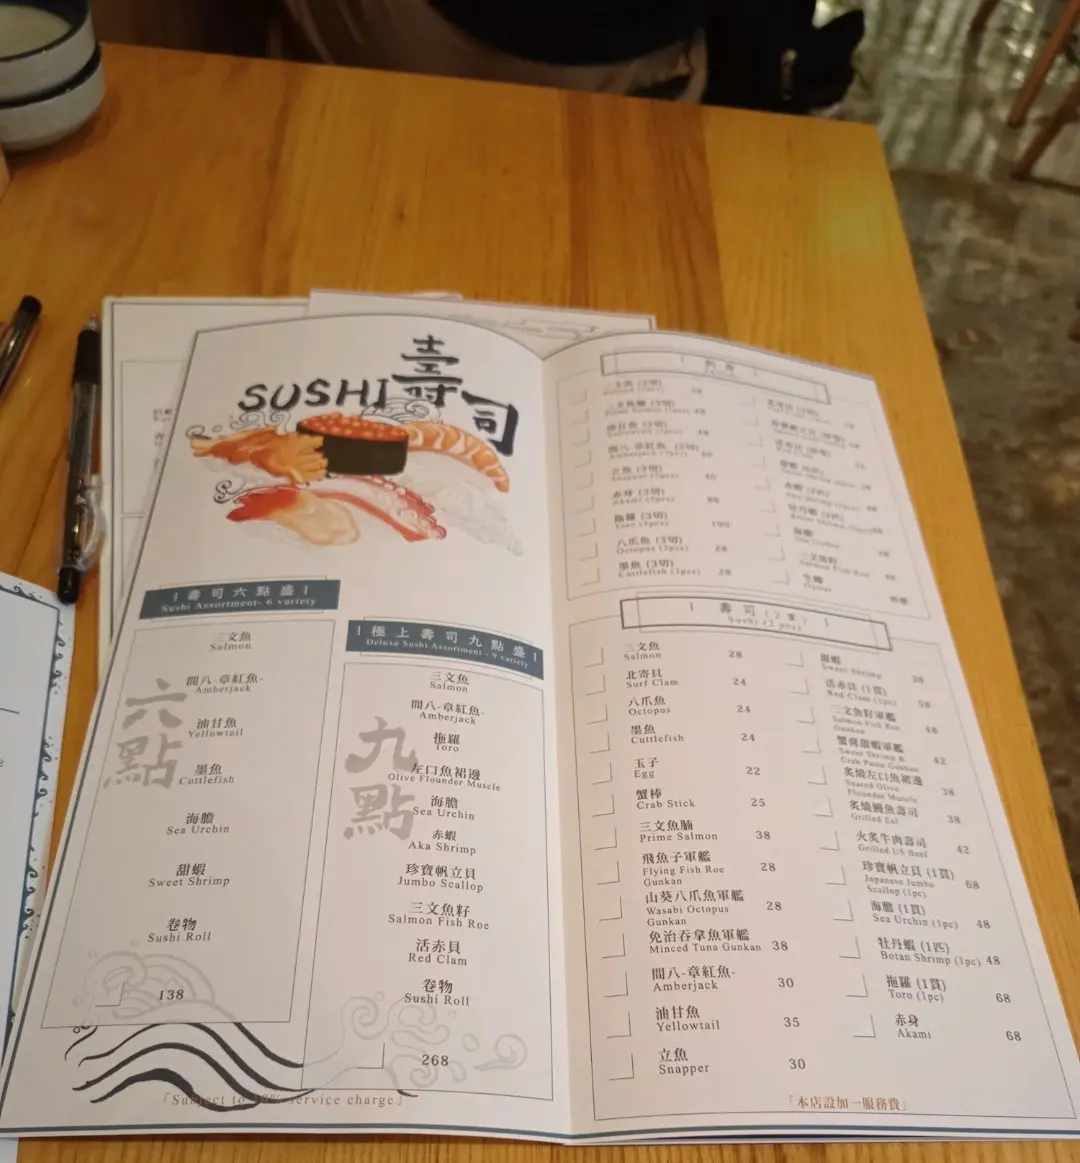 SUSHI 壽司
壽司六點盛
Sushi Assortment- 6 variety
六點
三文魚
Salmon
間八-章紅魚-
Amberjack
油甘魚
Yellowtail
墨魚
Cuttlefish
海膽
Sea Urchin
甜蝦
Sweet Shrimp
卷物
Sushi Roll
138
極上壽司九點盛
Deluxe Sushi Assortment - 9 variety
九點
三文魚
Salmon
間八-章紅魚-
Amberjack
拖羅
Toro
左口魚裙邊
Olive Flounder Muscle
海膽
Sea Urchin
赤蝦
Aka Shrimp
珍寶帆立貝
Jumbo Scallop
三文魚籽
Salmon Fish Roe
活赤貝
Red Clam
卷物
Sushi Roll
268
「Subject to 10% service charge」
刺身
三文魚 (3切)
油甘魚 (3切)
間八-章紅魚- (3切)
Amberjack (3pcs) 60
立魚 (3切)
Snapper (3pcs)
赤身 (3切)
Akami (3pcs)
拖羅 (3切)
Toro (3pcs) 190
八爪魚 (3切)
Octopus (3pcs) 28
墨魚 (3切)
Cuttlefish (3pcs) 28
赤蝦 (3匹)
牡丹蝦 (3匹)
海膽
Sea Urchin
三文魚籽
Salmon Fish Roe 48
生蠔
Oyster 時價
壽司 (2貫)
Sushi (2 pcs)
三文魚 28
Salmon
北寄貝 24
Surf Clam
八爪魚 24
Octopus
墨魚 24
Cuttlefish
玉子 22
Egg
蟹棒 25
Crab Stick
三文魚腩 38
Prime Salmon
飛魚子軍艦 28
Flying Fish Roe
Gunkan
山葵八爪魚軍艦 28
Wasabi Octopus
Gunkan
免治吞拿魚軍艦 38
Minced Tuna Gunkan
間八-章紅魚- 30
Amberjack
油甘魚 35
Yellowtail
立魚 30
Snapper
甜蝦
Sweet Shrimp 38
活赤貝 (1貫)
Red Clam (1pc) 58
三文魚籽軍艦
Salmon Fish Roe 48
Gunkan
蟹膏甜蝦軍艦
Sweet Shrimp & 42
Crab Paste Gunkan
炙燒左口魚裙邊
Seared Olive 38
Flounder Muscle
炙燒鰻魚壽司
Grilled Eel 38
火炙牛肉壽司
Grilled US Beef 42
珍寶帆立貝 (1貫)
Japanese Jumbo 68
Scallop (1pc)
海膽 (1貫)
Sea Urchin (1pc) 48
牡丹蝦 (1匹)
Botan Shrimp (1pc) 48
拖羅 (1貫)
Toro (1pc) 68
赤身
Akami 68
「本店設加一服務費」